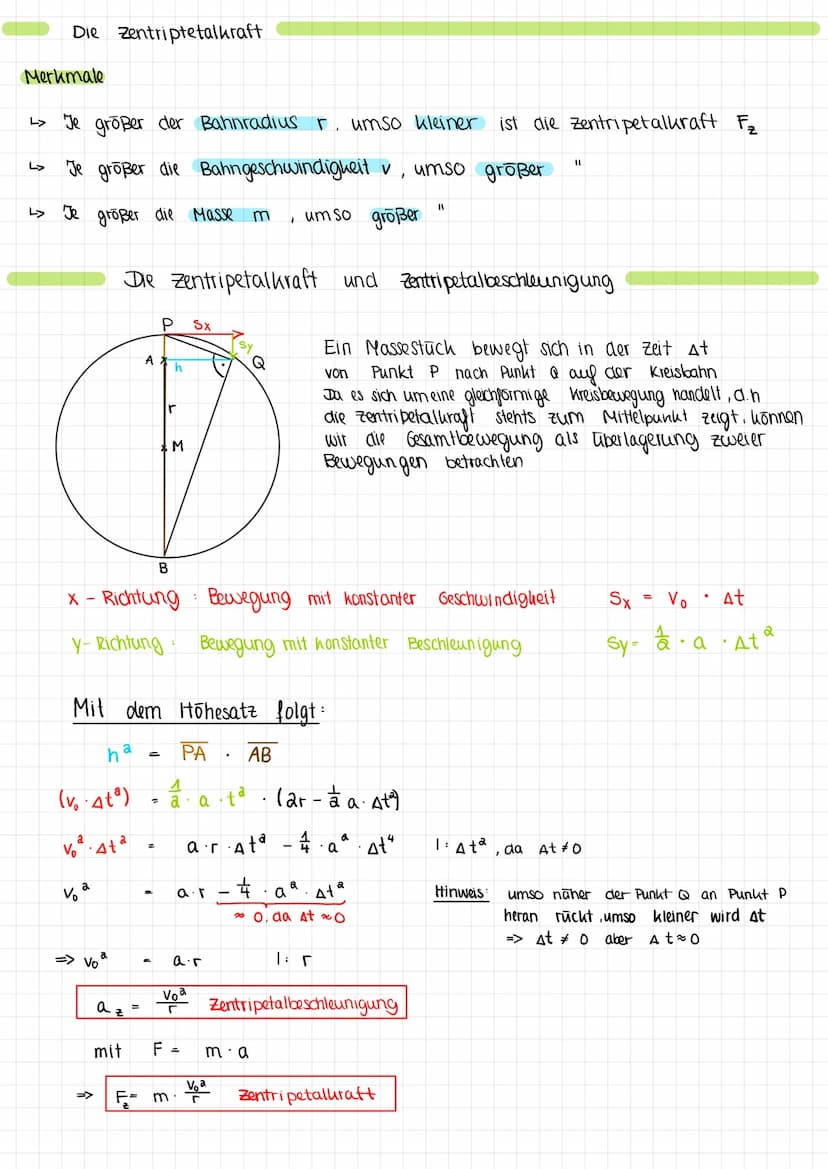 Die Zentriptetalkraft
Merkmale
↳ Je größer der Bahnradius r, umso kleiner ist die Zentripetalkraft F_z
↳ Je größer die Bahngeschwindigkeit v, umso größer "
↳ Je größer die Masse m, umso größer "
Die Zentripetalkraft und Zentripetalbeschleunigung
P Sx
Sy
A h Q
r
M
B
Ein Massestück bewegt sich in der Zeit Δt
von Punkt P nach Punkt Q auf der Kreisbahn
Da es sich um eine gleichförmige Kreisbewegung handelt, d.h
die Zentripetalkraft stehts zum Mittelpunkt zeigt, können
wir die Gesamtbewegung als Überlagerung zweier
Bewegungen betrachten
x - Richtung : Bewegung mit konstanter Geschwindigkeit Sx = v₀ · Δt
y - Richtung : Bewegung mit konstanter Beschleunigung Sy = 1/2 · a · Δt²
Mit dem Höhesatz folgt:
h² = PA · AB
(v₀ · Δt²) = 1/2 · a · t² · (2r - 1/2 a · Δt²)
v₀² · Δt² = a · r · Δt² - 1/4 · a² · Δt⁴ |: Δt², da Δt ≠ 0
v₀² = a · r - 1/4 · a² · Δt²
≈ 0, da Δt ≈ 0
Hinweis: umso näher der Punkt Q an Punkt P
heran rückt, umso kleiner wird Δt
=> Δt ≠ 0 aber Δt ≈ 0
=> v₀² = a · r |: r
a_z = v₀²/r Zentripetalbeschleunigung
mit F = m · a
=> F_z = m · v₀²/r Zentripetalkraft